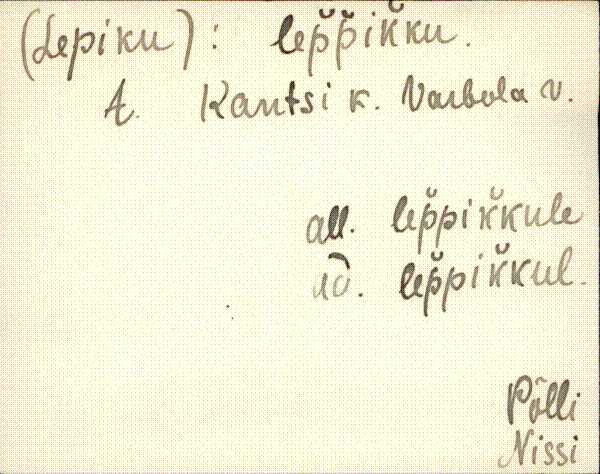 (Lepiku): lep̆p̆ik̆ku.
A. Kantsi k. Varbola v.
all. lep̆pik̆kule
ad. lep̆pik̆kul.
Põlli
Nissi